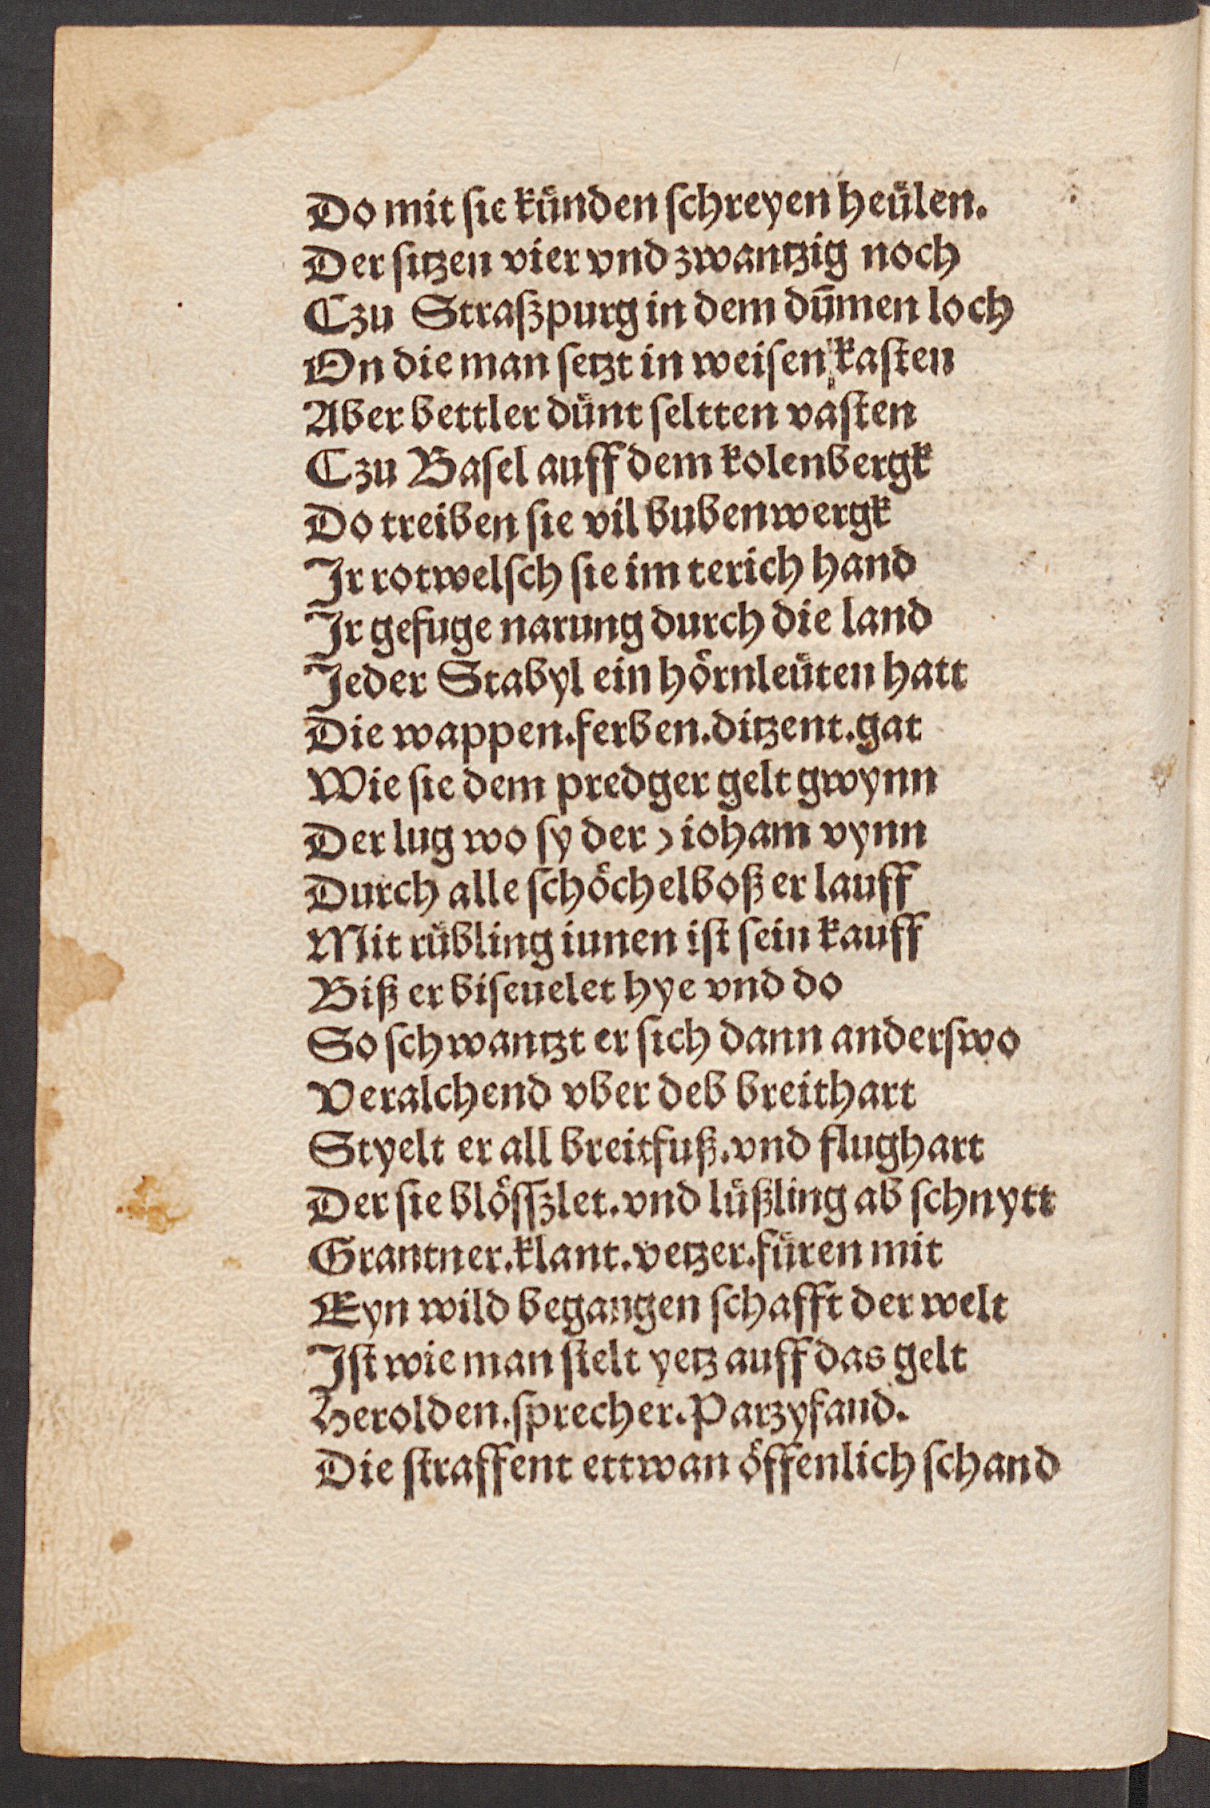 Do mit ſie kuͤnden ſchreyen heuͤlen.
Der ſitzen vier vnd zwantzig noch
Czu Straſzpurg in dem du̅men loch
On die man ſetzt in weiſen kaſten
Aber bettler duͤnt ſeltten vaſten
Czu Baſel auff dem kolenbergk
Do treiben ſie vil bubenwergk
Jr rotwelſch ſie im terich hand
Jr gefuge narung durch die land
Jeder Stabyl ein hoͤrnleuͤten hatt
Die wappen.ferben.ditzent.gat
Wie ſie dem predger gelt gwynn
Der lug wo ſy der ioham vynn
Durch alle ſchoͤchelboß er lauff
Mit ruͤbling iunen iſt ſein kauff
Biß er biſeuelet hye vnd do
So ſchwantzt er ſich dann anderſwo
Veralchend vber deb breithart
Styelt er all breitfuß.vnd flughart
Der ſie bloͤſſzlet.vnd luͤßling ab ſchnytt
Grantner.klant.vetzer.fuͤren mit
Eyn wild begangen ſchafft der welt
Jſt wie man ſtelt yetz auff das gelt
Herolden.ſprecher.Parzyfand.
Die ſtraffent ettwan oͤffenlich ſchand